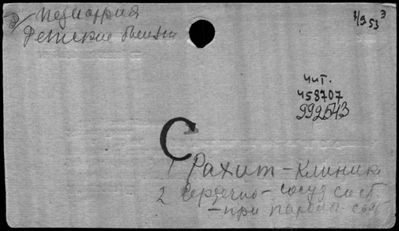 Педиатрия
Детские болезни
3/IX 53
чит.
458707
992543
С
1 Рахит - клиника
2 Сердечно - сосуд сист
- при